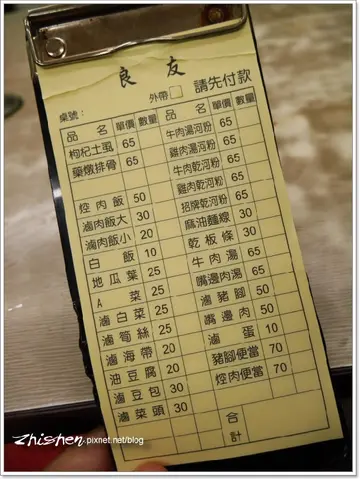 良友
桌號：
外帶□ 請先付款
品名 單價 數量
枸杞土虱 65
藥燉排骨 65
焢肉飯 50
滷肉飯大 30
滷肉飯小 20
白飯 10
地瓜葉 25
A菜 25
滷白菜 25
滷筍絲 25
滷海帶 20
油豆腐 20
滷豆包 30
滷菜頭 30
品名 單價 數量
牛肉湯河粉 65
雞肉湯河粉 65
牛肉乾河粉 65
雞肉乾河粉 65
招牌乾河粉 65
麻油麵線 30
乾板條 30
牛肉湯 65
嘴邊肉湯 65
滷豬腳 50
嘴邊肉 50
滷蛋 10
豬腳便當 70
焢肉便當 70
合計
Zhishen.pixnet.net/blog